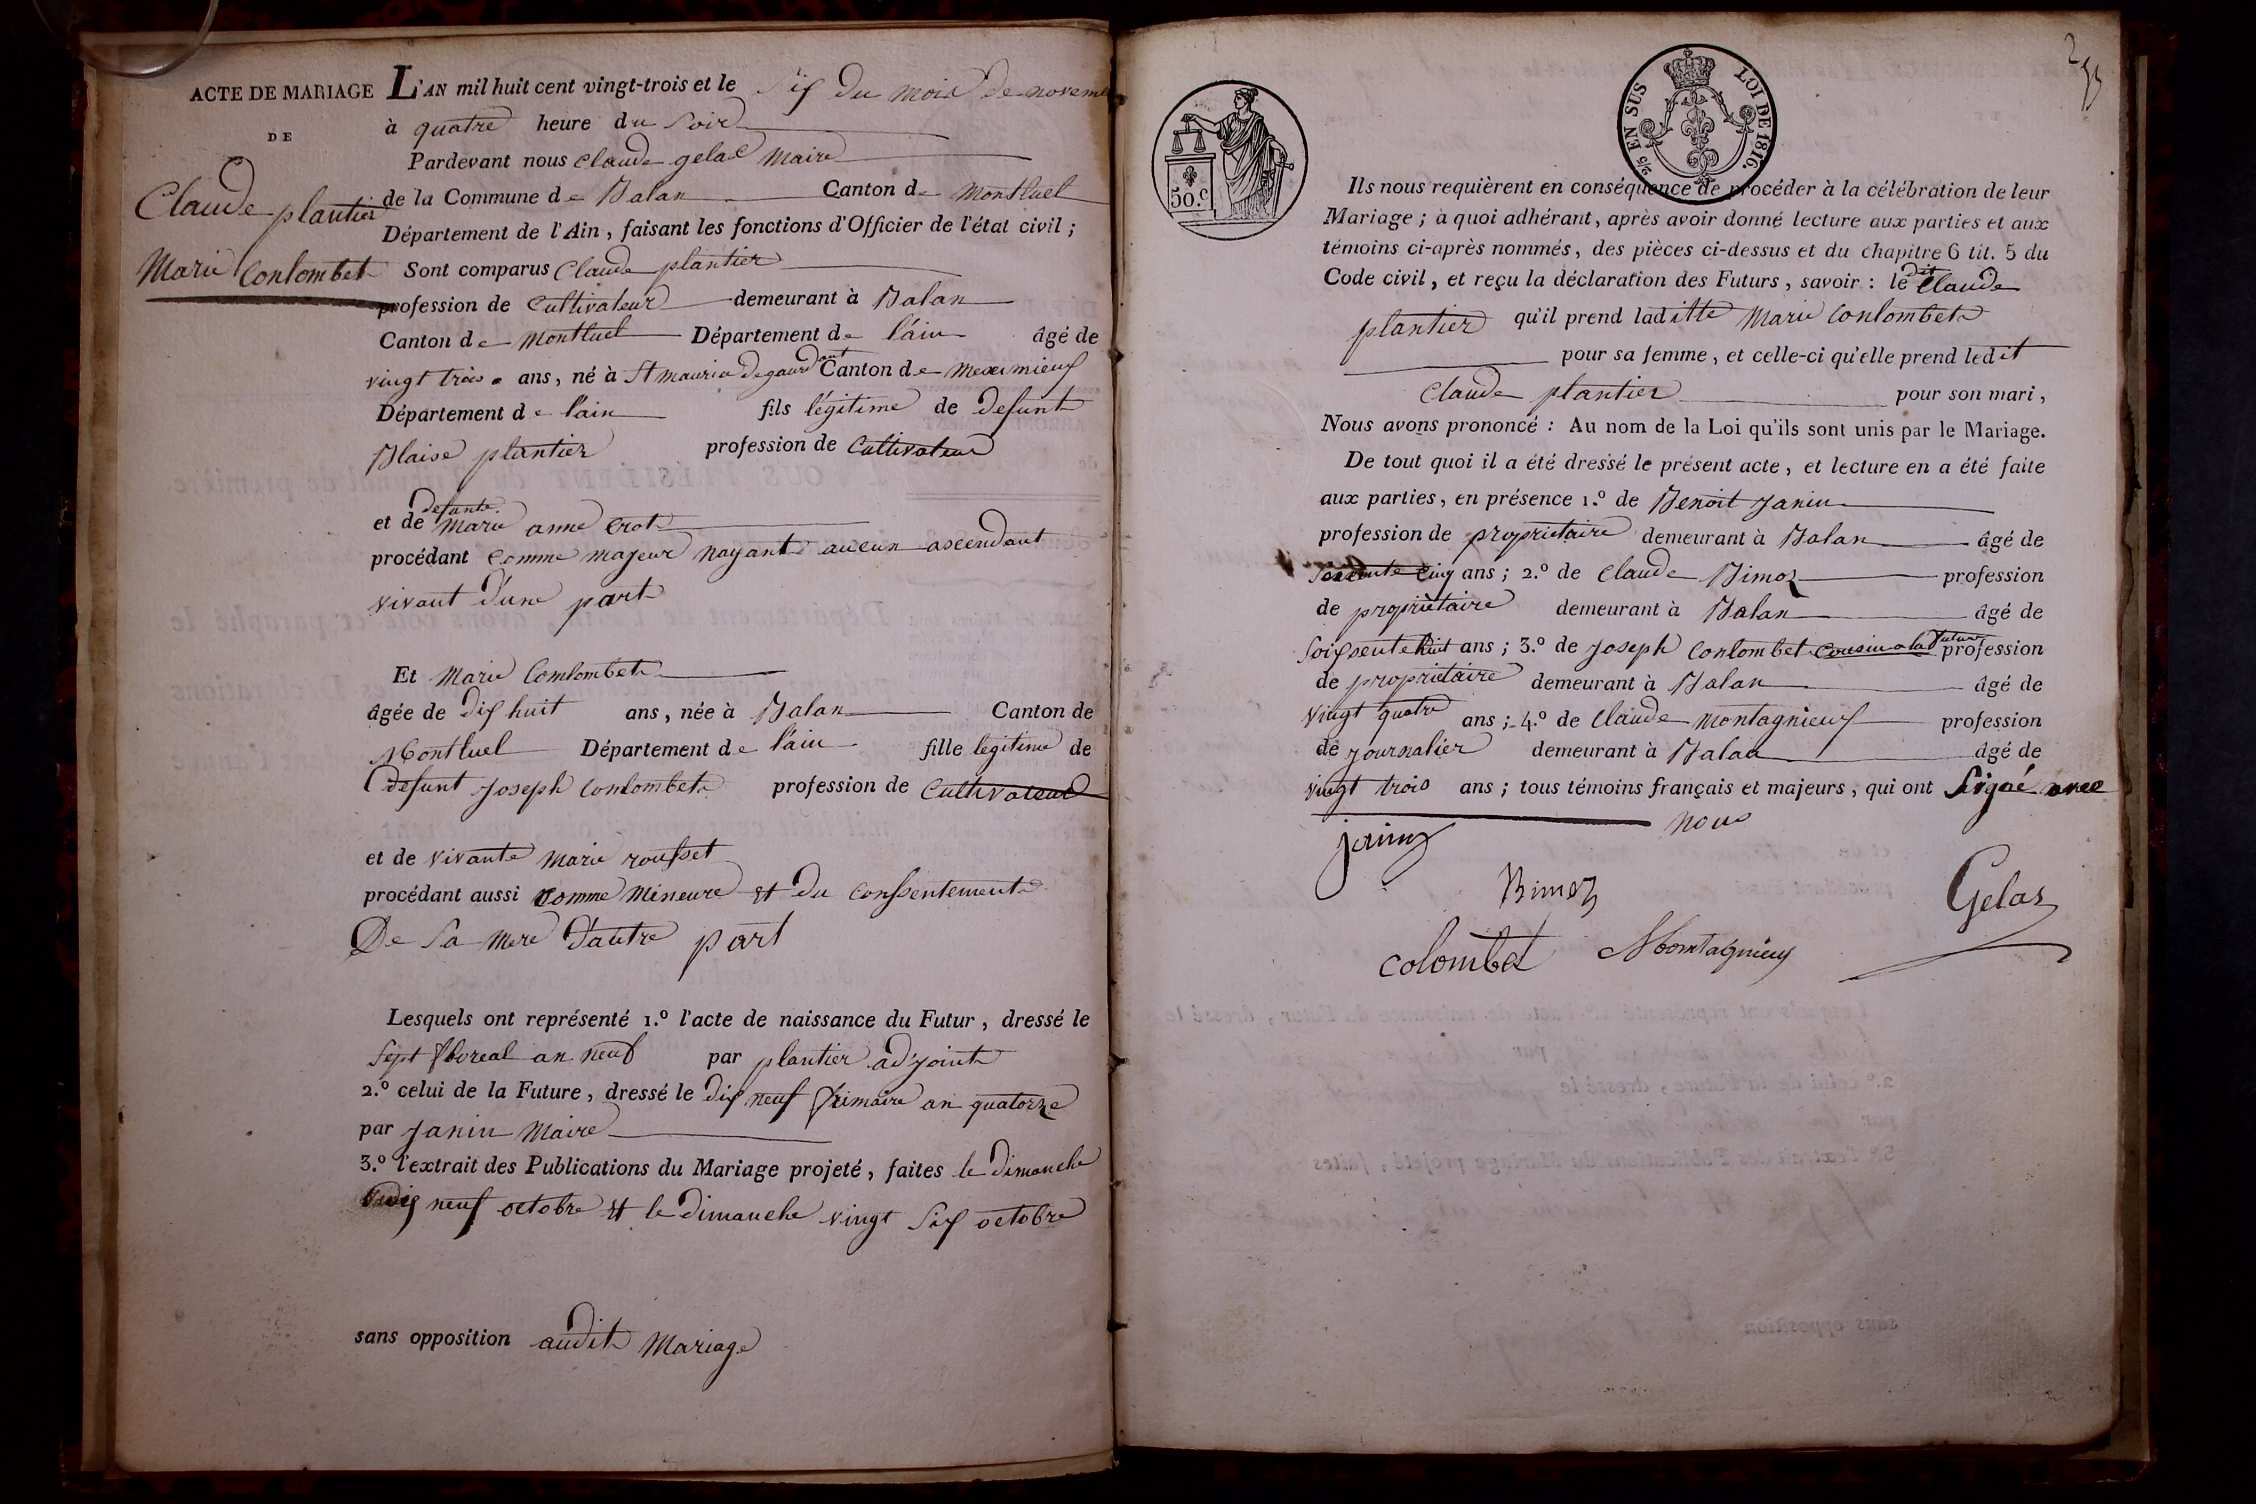 ACTE DE MARIAGE
DE
Claude plantier
Marie Conlombet
L'AN mil huit cent vingt-trois et le Six du mois de novem
à quatre heure du Soir
Pardevant nous Claude gelas Maire
de la Commune de Balan Canton de Montluel
Département de l'Ain, faisant les fonctions d'Officier de l'état civil ;
Sont comparus Claude plantier
profession de Cultivateur demeurant à Balan
Canton de Montluel Département de l'ain âgé de
vingt trois ans, né à St maurice degourdant Canton de Meximieux
Département de l'ain fils légitime de defunt
Blaise plantier profession de Cultivateur
defunte
et de Marie anne Crot
procédant Comme Majeur nayant aucun ascendant
vivant d'une part
Et Marie Comlombet
âgée de dix huit ans, née à Balan Canton de
Montluel Département de l'ain fille legitime de
Defunt Joseph Conlombet profession de Cultivateur
et de vivante Marie rousset
procédant aussi Comme Mineure et du Conssentement
De Sa Mere d'autre part
Lesquels ont représenté 1.º l'acte de naissance du Futur, dressé le
Sept floreal an neuf par plantier adjoint
2.º celui de la Future, dressé le dix neuf frimaire an quatorze
par Janin Maire
3.º l'extrait des Publications du Mariage projeté, faites le dimanche
dix neuf octobre et le dimanche vingt Six octobre
sans opposition audit Mariage
50. C
2/5 EN SUS LOI DE 1816.
Ils nous requièrent en conséquence de procéder à la célébration de leur
Mariage ; à quoi adhérant, après avoir donné lecture aux parties et aux
témoins ci-après nommés, des pièces ci-dessus et du chapitre 6 tit. 5 du
Code civil, et reçu la déclaration des Futurs, savoir : le dit Claude
plantier qu'il prend laditte Marie Conlombet
pour sa femme, et celle-ci qu'elle prend ledit
Claude plantier pour son mari,
Nous avons prononcé : Au nom de la Loi qu'ils sont unis par le Mariage.
De tout quoi il a été dressé le présent acte, et lecture en a été faite
aux parties, en présence 1.º de Benoit Janin
profession de propriétaire demeurant à Balan âgé de
cinq ans ; 2.º de Claude Bimoz profession
de propriétaire demeurant à Balan âgé de
Soixsente huit ans ; 3.º de Joseph Conlombet Cousin a la future profession
de propriétaire demeurant à Balan âgé de
Vingt quatre ans ; 4.º de Claude Montagnieux profession
de journalier demeurant à Balan âgé de
vingt trois ans ; tous témoins français et majeurs, qui ont Signé avec
nous
janin
Bimoz
Gelas
Colombet Montagnieux